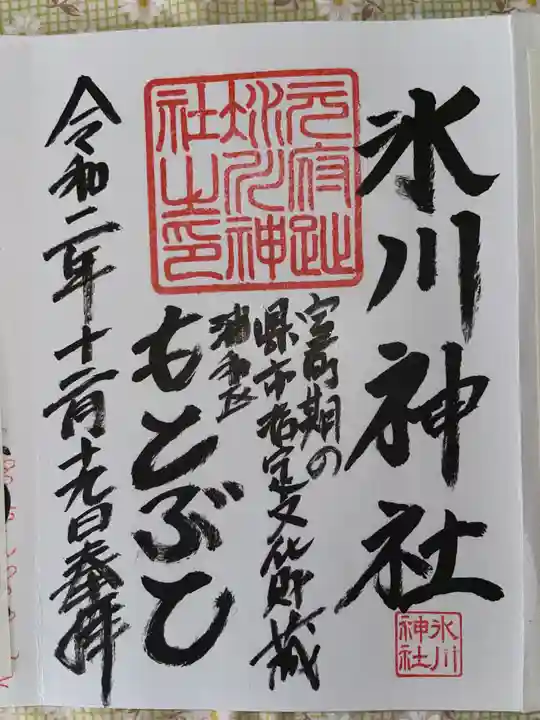 氷川神社
室町期の
県市指定文化財蔵
浦和区
もとぶと
元府趾
氷川神
社之印
令和二年十二月十九日奉拝
氷川
神社